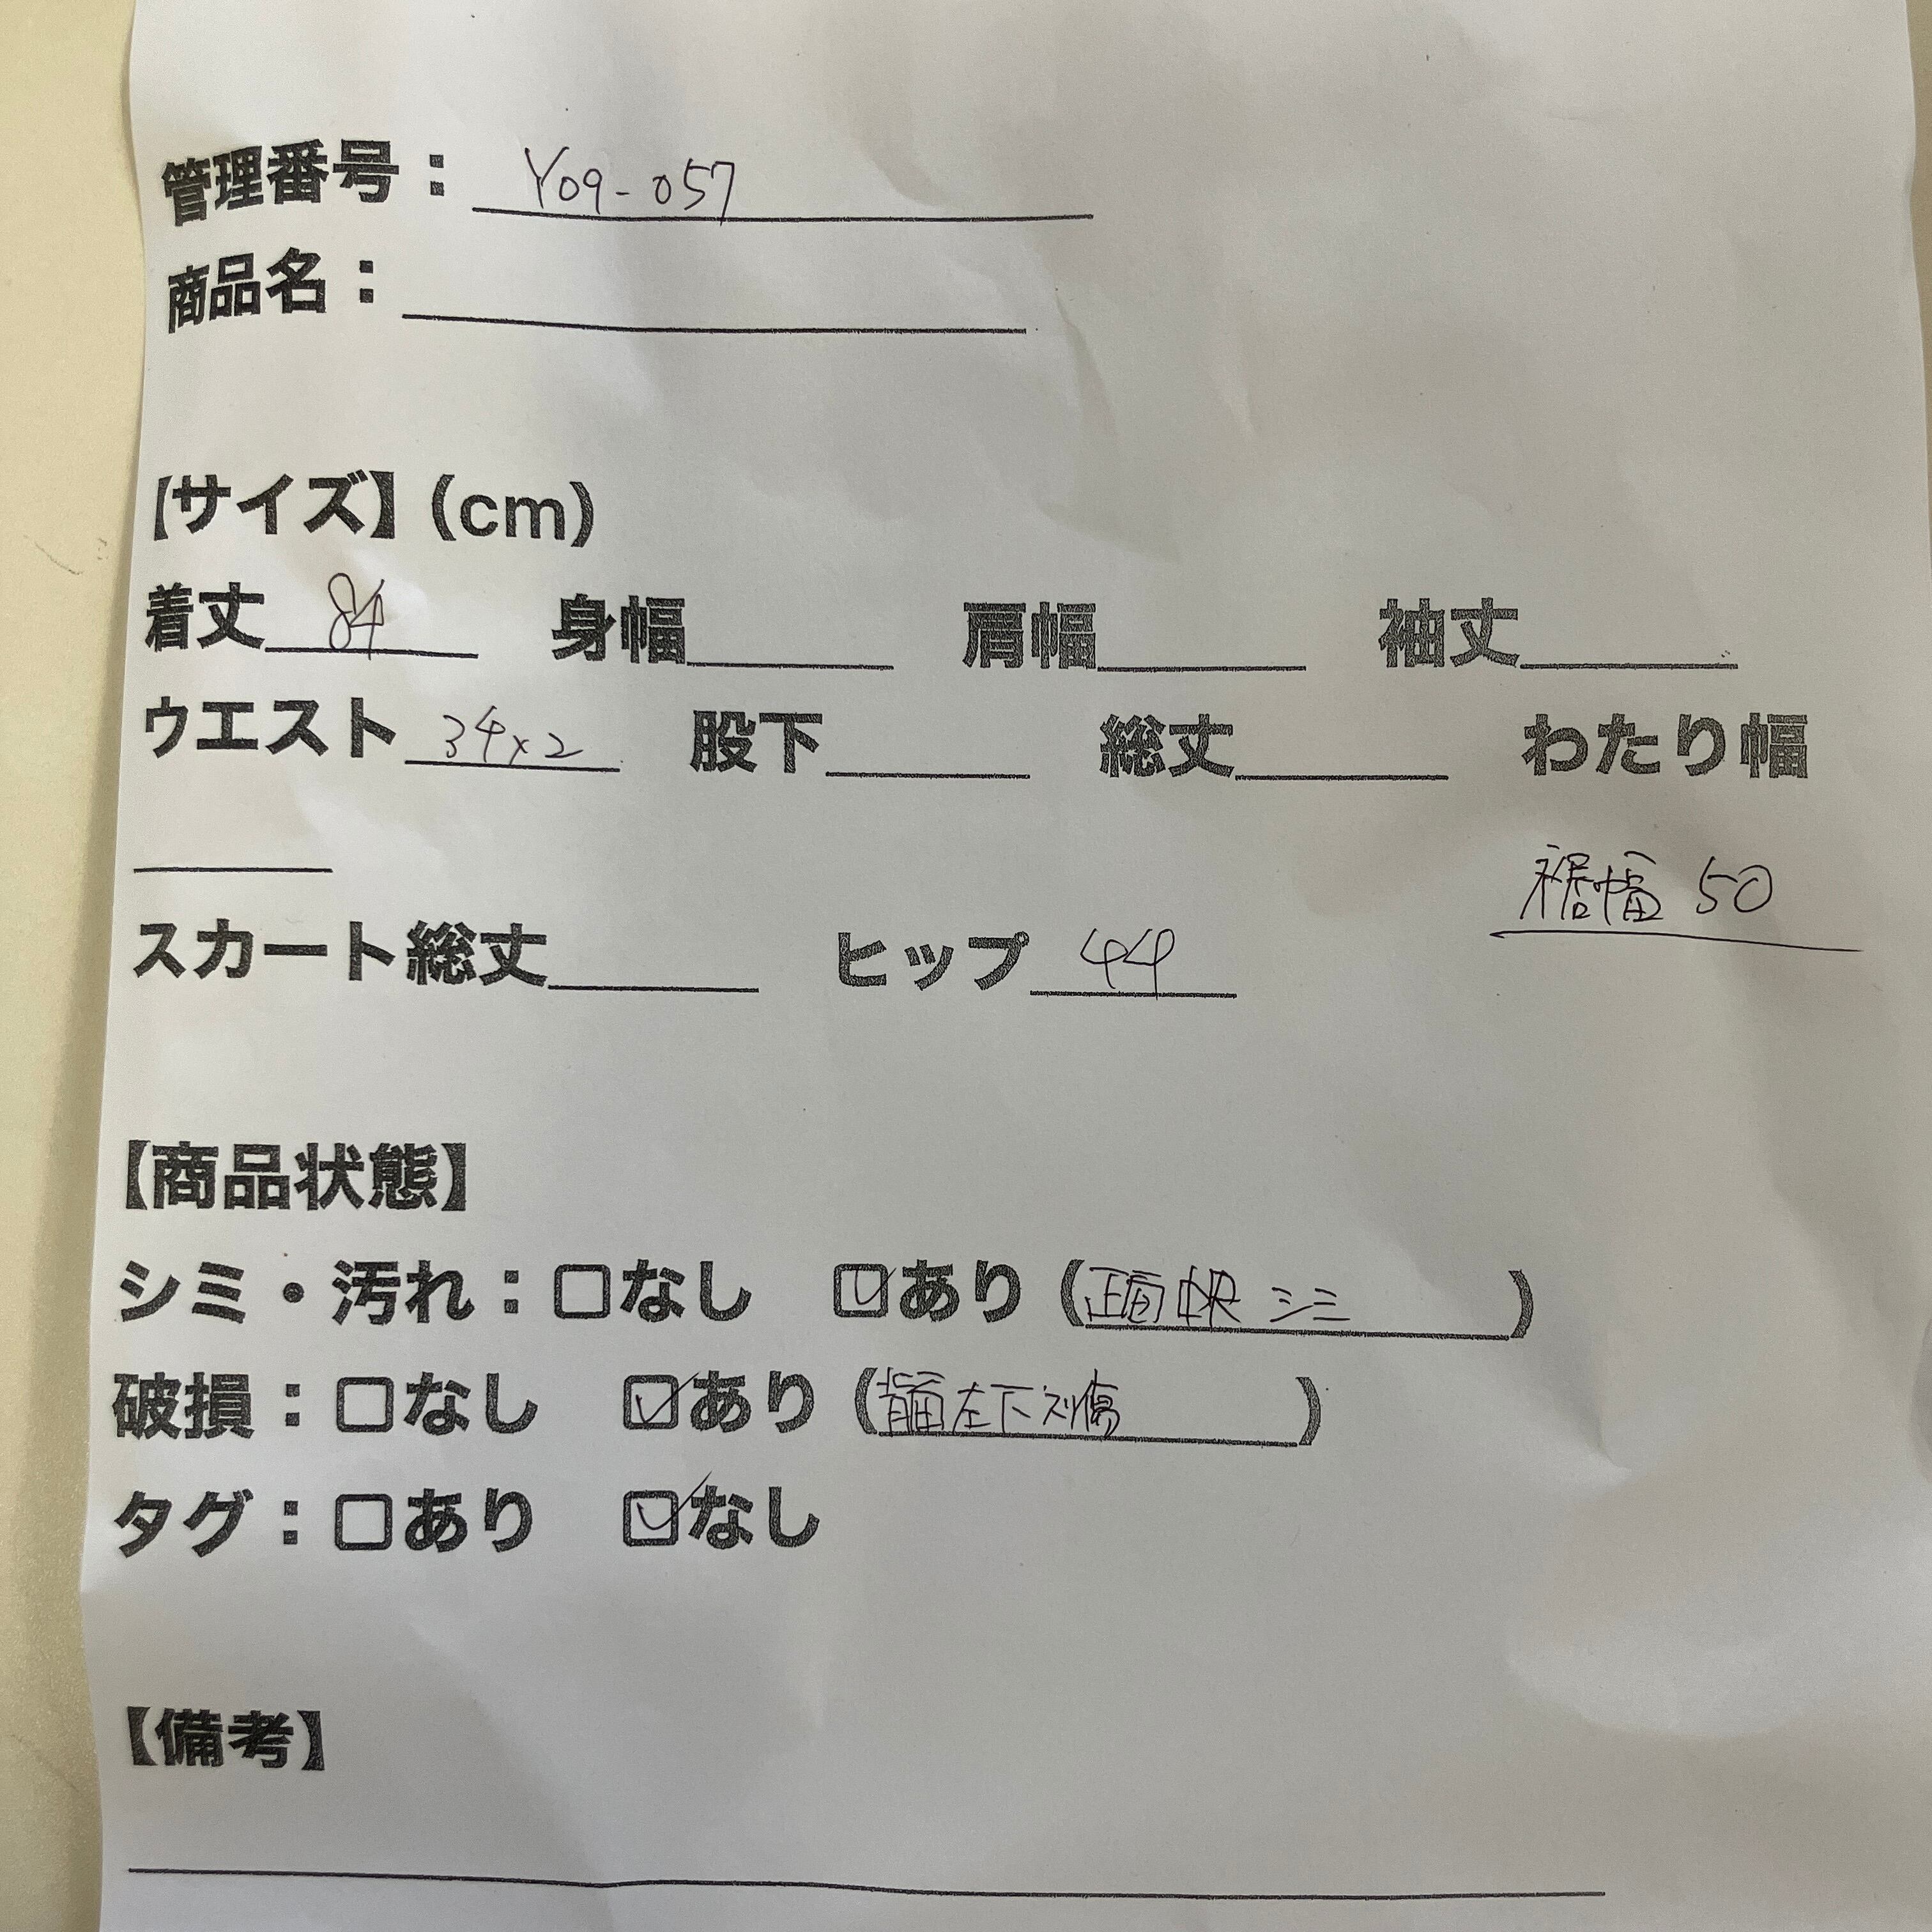 管理番号：Y09-057
商品名：
【サイズ】(cm)
着丈 84 身幅 肩幅 袖丈
ウエスト 34×2 股下 総丈 わたり幅
裾幅 50
スカート総丈 ヒップ 44
【商品状態】
シミ・汚れ：□なし ☑あり（正面中央 シミ）
破損：□なし ☑あり（背面左下スリ傷）
タグ：□あり ☑なし
【備考】